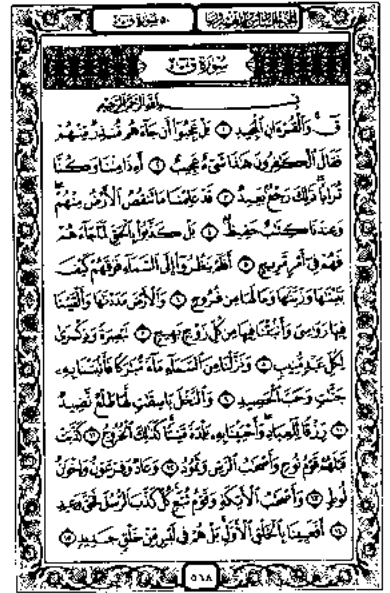 ٥٠ سورة ق
سُورَةُ ق
بِسْمِ اللَّهِ الرَّحْمَٰنِ الرَّحِيمِ
قٓ ۚ وَالْقُرْءَانِ الْمَجِيدِ ١ بَلْ عَجِبُوٓا أَن جَآءَهُم مُّنذِرٌ مِّنْهُمْ
فَقَالَ الْكَٰفِرُونَ هَٰذَا شَىْءٌ عَجِيبٌ ٢ أَءِذَا مِتْنَا وَكُنَّا
تُرَابًا ۖ ذَٰلِكَ رَجْعٌۢ بَعِيدٌ ٣ قَدْ عَلِمْنَا مَا تَنقُصُ الْأَرْضُ مِنْهُمْ ۖ
وَعِندَنَا كِتَٰبٌ حَفِيظٌۢ ٤ بَلْ كَذَّبُوا بِالْحَقِّ لَمَّا جَآءَهُمْ
فَهُمْ فِىٓ أَمْرٍ مَّرِيجٍ ٥ أَفَلَمْ يَنظُرُوٓا إِلَى السَّمَآءِ فَوْقَهُمْ كَيْفَ
بَنَيْنَٰهَا وَزَيَّنَّٰهَا وَمَا لَهَا مِن فُرُوجٍ ٦ وَالْأَرْضَ مَدَدْنَٰهَا وَأَلْقَيْنَا
فِيهَا رَوَٰسِىَ وَأَنۢبَتْنَا فِيهَا مِن كُلِّ زَوْجٍۭ بَهِيجٍ ٧ تَبْصِرَةً وَذِكْرَىٰ
لِكُلِّ عَبْدٍ مُّنِيبٍ ٨ وَنَزَّلْنَا مِنَ السَّمَآءِ مَآءً مُّبَٰرَكًا فَأَنۢبَتْنَا بِهِۦ
جَنَّٰتٍ وَحَبَّ الْحَصِيدِ ٩ وَالنَّخْلَ بَاسِقَٰتٍ لَّهَا طَلْعٌ نَّضِيدٌ
١٠ رِّزْقًا لِّلْعِبَادِ ۖ وَأَحْيَيْنَا بِهِۦ بَلْدَةً مَّيْتًا ۚ كَذَٰلِكَ الْخُرُوجُ ١١ كَذَّبَتْ
قَبْلَهُمْ قَوْمُ نُوحٍ وَأَصْحَٰبُ الرَّسِّ وَثَمُودُ ١٢ وَعَادٌ وَفِرْعَوْنُ وَإِخْوَٰنُ
لُوطٍ ١٣ وَأَصْحَٰبُ الْأَيْكَةِ وَقَوْمُ تُبَّعٍ ۚ كُلٌّ كَذَّبَ الرُّسُلَ فَحَقَّ وَعِيدِ
١٤ أَفَعَيِينَا بِالْخَلْقِ الْأَوَّلِ ۚ بَلْ هُمْ فِى لَبْسٍ مِّنْ خَلْقٍ جَدِيدٍ ١٥
٥٦٨